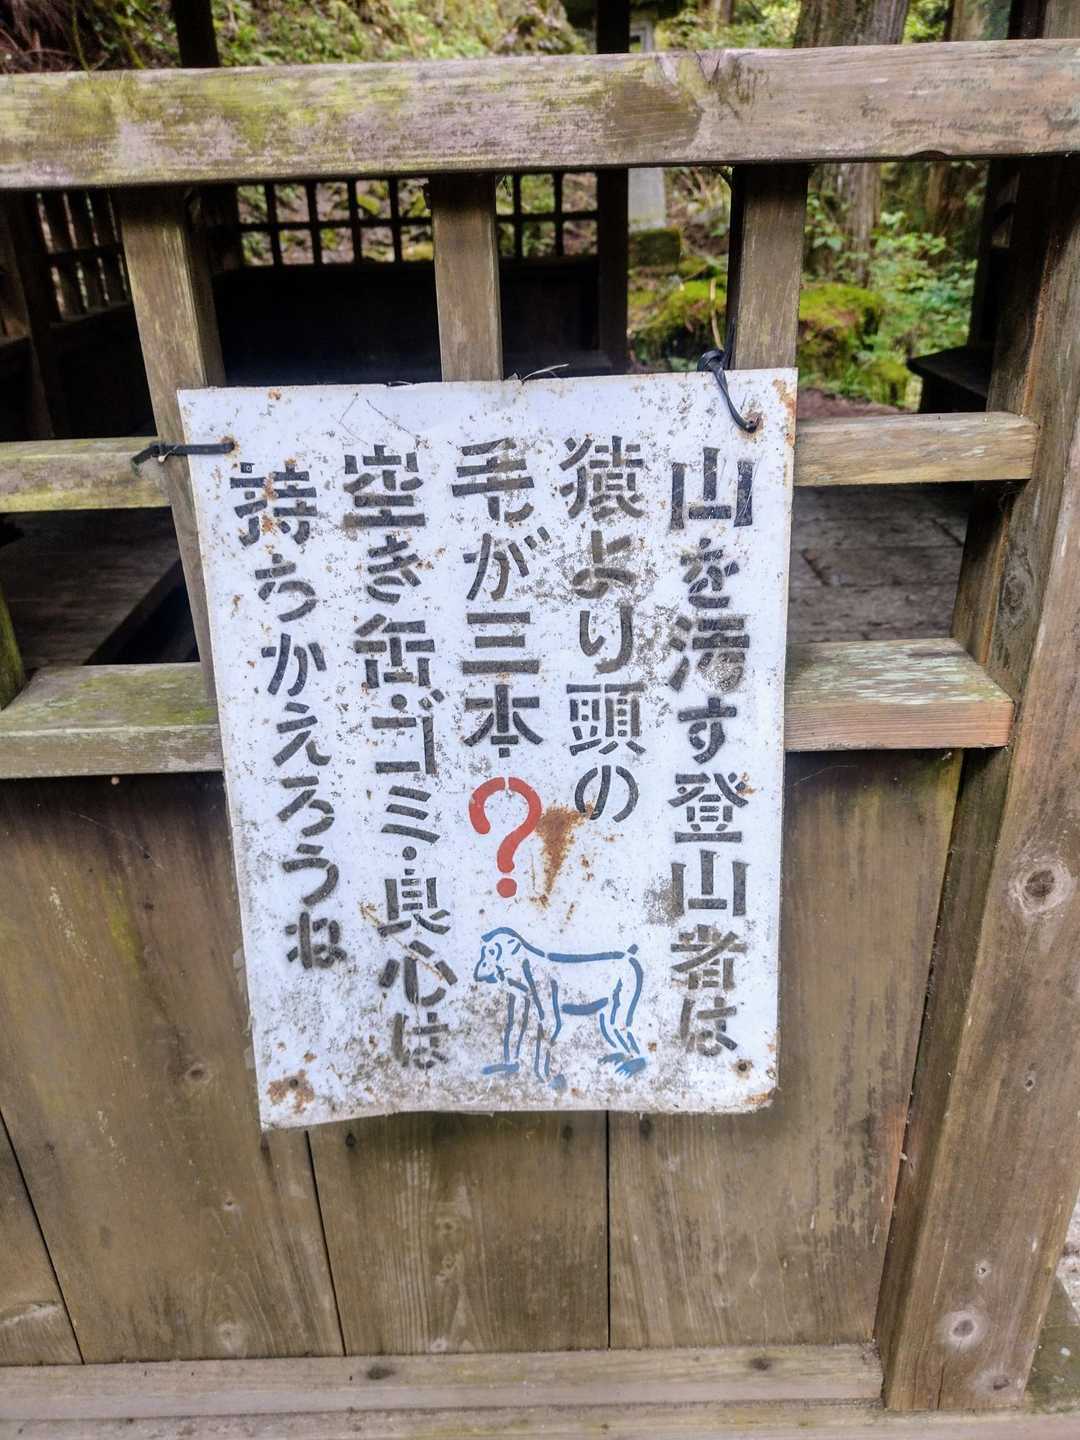 山を汚す登山者は
猿より頭の
毛が三本?
空き缶・ゴミ・良心は
持ちかえろうね